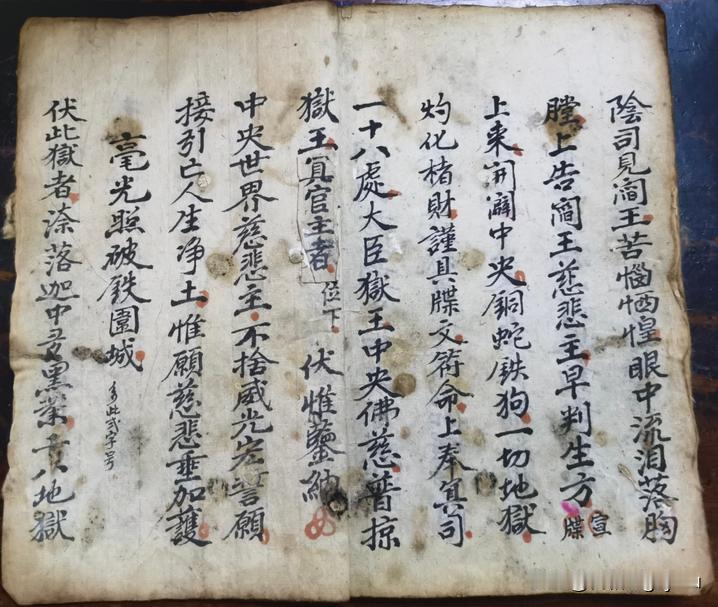 陰司見閻王苦惱恓惶眼中流泪落胸
膛上告閻王慈悲主早判生方 宣牒
上来開闢中央铜蛇鉄狗一切地獄
灼化楮財謹具牒文符命上奉冥司
一十八處大臣獄王中央佛慈普掠
獄王冥官主者 位下 伏惟鑒納
中央世界慈悲主不捨威光宏誓願
接引亡人生净土惟願慈悲垂加護
毫光照破鉄圍城 此弍字号
伏此獄者深落迦中黑業十八地獄